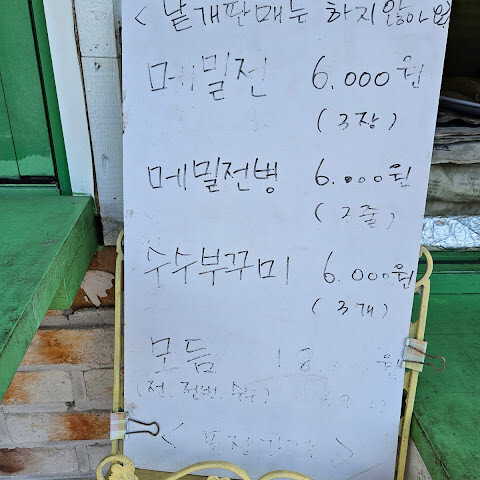 < 낱개판매는 하지않아요
메밀전 6.000원
(3장)
메밀전병 6.000원
(2줄)
수수부꾸미 6.000원
(3개)
모듬
(전.전병.수수)
< 포장가능 >